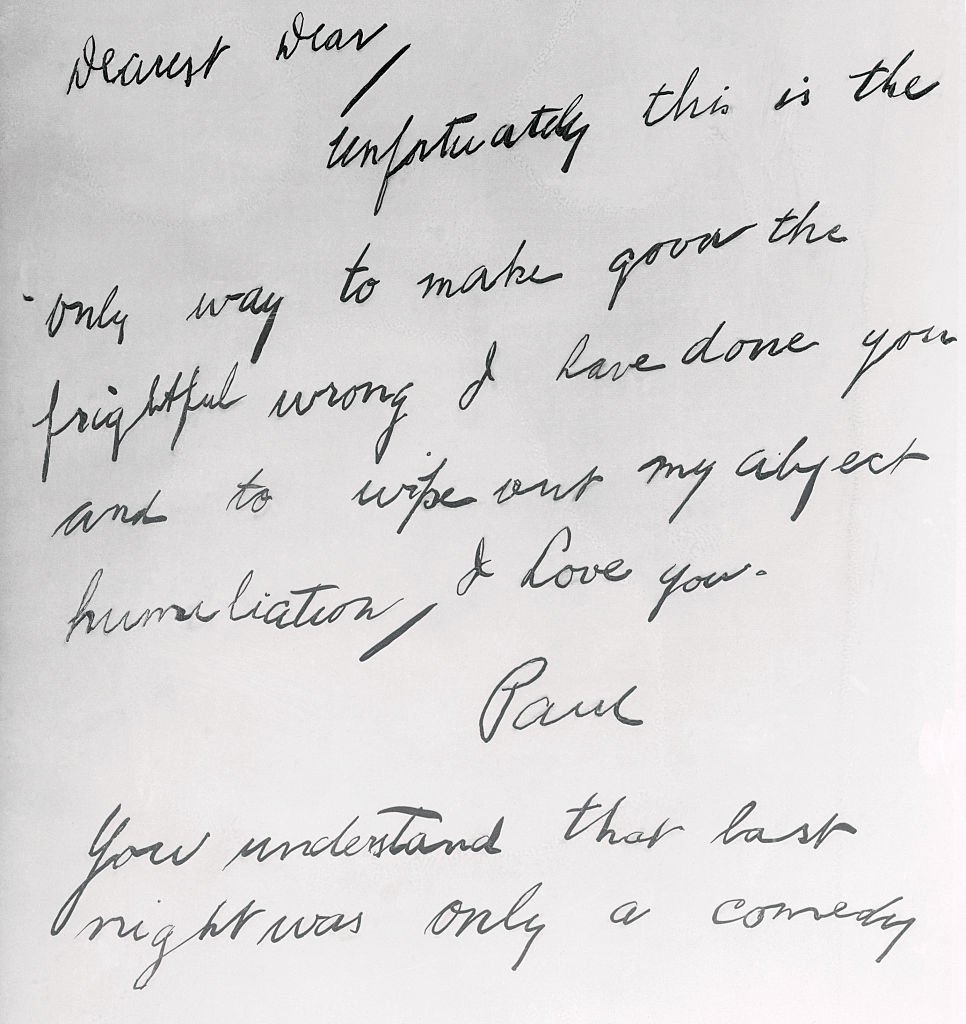 Dearest Dear,
Unfortuately this is the
only way to make good the
frightful wrong I have done you
and to wipe out my abject
humiliation, I Love you.
Paul
You understand that last
night was only a comedy